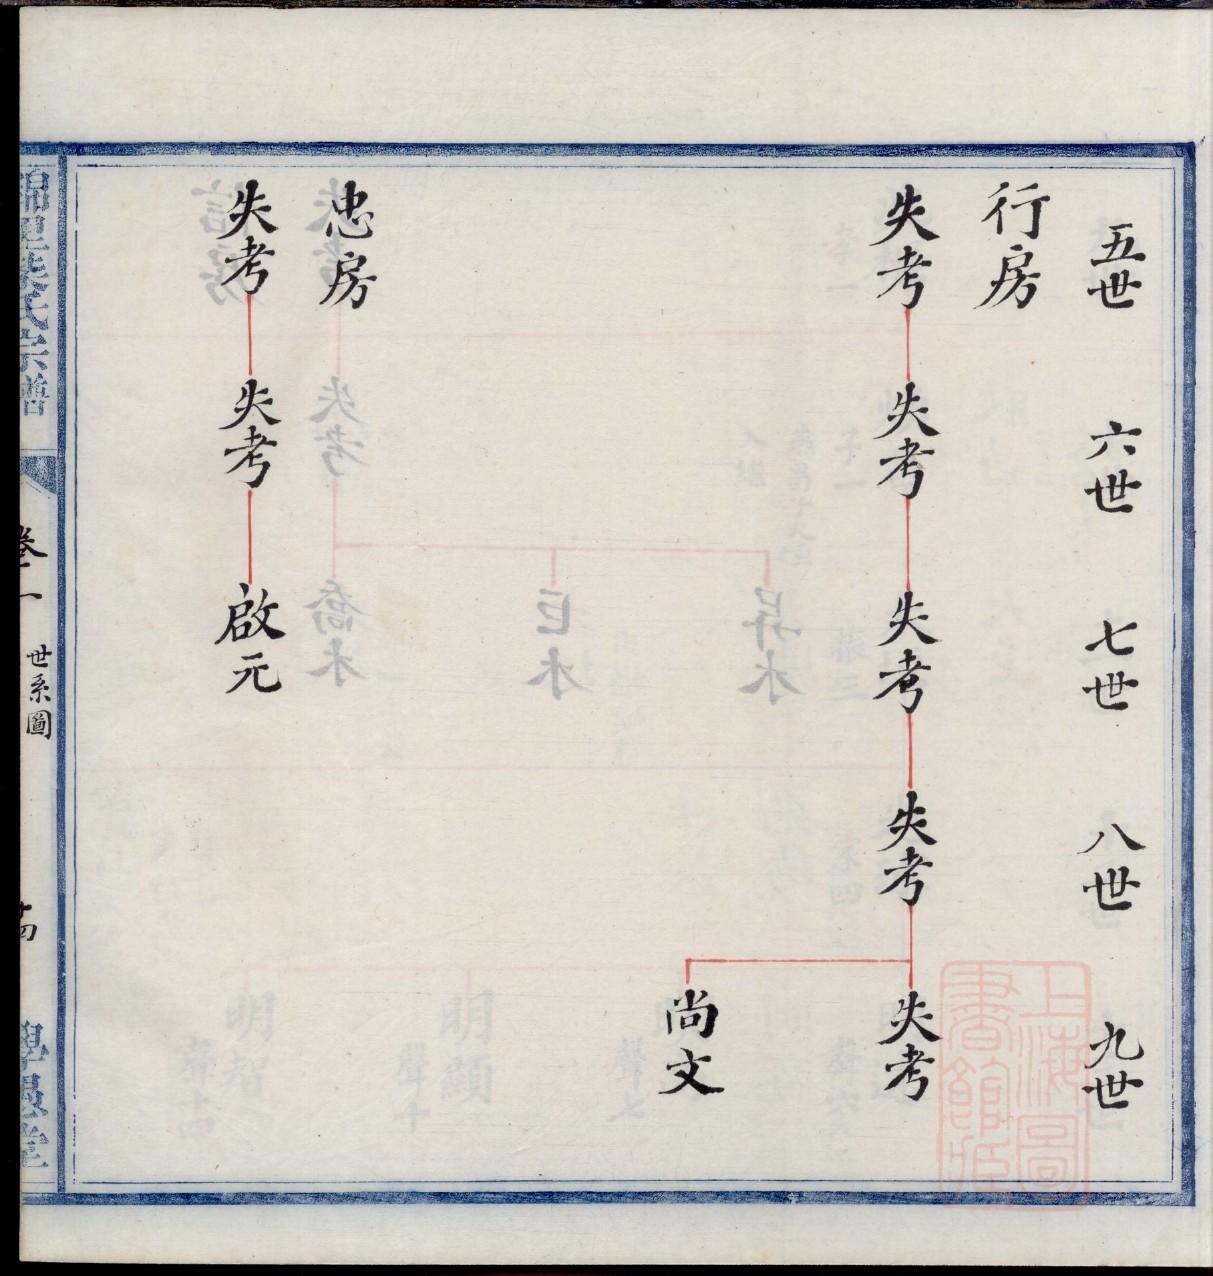 五世
六世
七世
八世
九世
行房
失考
失考
失考
失考
失考
尚文
忠房
失考
失考
啟元
氏宗譜
卷一
世系圖
十四
學愚堂
上海圖書館藏